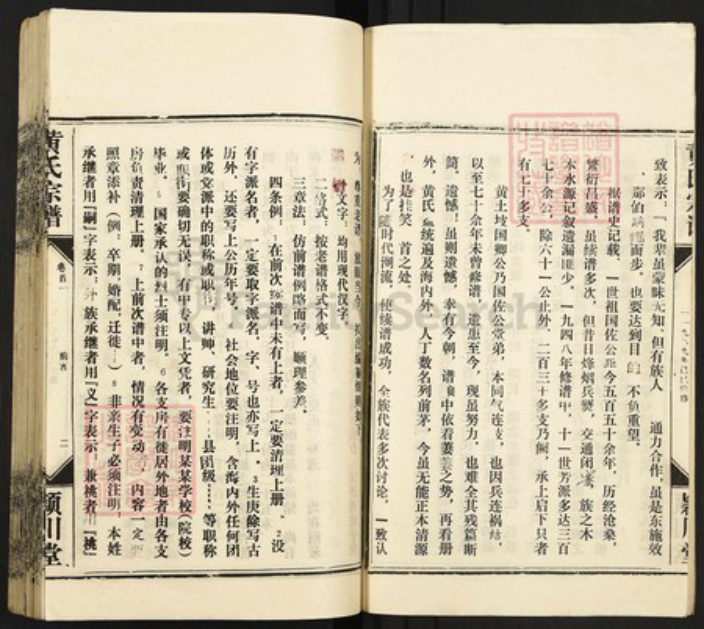 致表示：「我辈虽蒙昧无知、但有族人 通力合作，虽是东施效
而步，也要达到目 不负重望。
据谱史记载，一世祖国佐公距今五百五十余年，历经沧桑，
繁衍昌盛，虽续谱多次，但昔日烽烟兵燹，交通闭塞，族之木
本水源记叙遗漏匪少，一九四八年修谱中，十一世芳派多达三百
七十余公，除六十一公止外，二百三十多支乃阙，承上启下只者
有七十多支。
黄土坡国卿公乃国佐公堂弟，本同气连支，也因兵连祸结，
以至七十余年未曾修谱，遗患至今，现虽努力，也难全其残篇断
简。遗憾！虽则遗憾，幸有今朝，谱中依着萋萋之势，再看册
外，黄氏 统遍及海内外，人丁数名列前茅，今虽无能正本清源
，也是挂笑 首之处。
为了随时代潮流，使续谱成功，全族代表多次讨论，一致认
文字：均用现代汉字。
二格式：按老谱格式不变。
三章法：仿前谱例略而写，顺理参差。
四条例：1在前次 谱中未有上者，一定要清理上册，2没
有字派名者，一定要取字派名，字、号也亦写上，3生庚除写古
历外，还要写上公历年号，社会地位要注明，含海内外任何团
体或党派中的职称或职 讲师、研究生 县团级 等职称
或职衔要确切无误，有中专以上文凭者，要注明某某学校（院校）
毕业。5国家承认的烈士须注明。6各支房有徙居外地者由各支
房负责清理上册。7上前次谱中者，情况有变动，内容一定
照章添补（例：卒期、婚配、迁徙 ）8非亲生子必须注明，本姓
承继者用「嗣」字表示， 族承继者用「义」字表示，兼桃者用「桃」
黄氏宗谱
卷首一
二
颍川堂